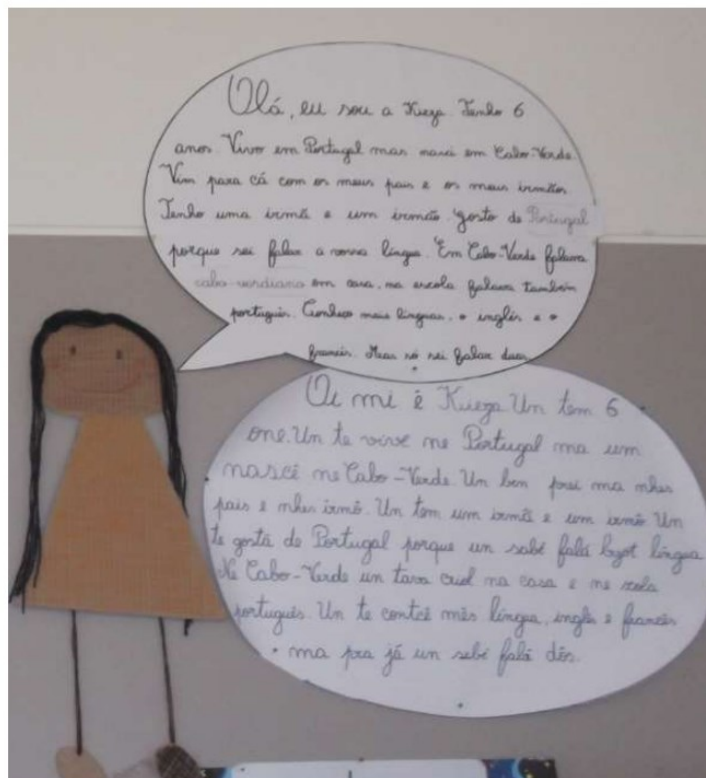 Olá, eu sou a Kieza. Tenho 6
anos. Vivo em Portugal mas nasci em Cabo-Verde.
Vim para cá com os meus pais e os meus irmãos.
Tenho uma irmã e um irmão. Gosto de Portugal
porque sei falar a vossa língua. Em Cabo-Verde falava
cabo-verdiano em casa, na escola falava também
português. Conheço mais línguas, o inglês e o
francês. Mas só sei falar duas.
Oi mi ê Kieza Un tem 6
one. Un te vive ne Portugal ma um
nascê ne Cabo-Verde. Un ben prei ma nhes
pais e nhes irmô. Un tem um irmã e um irmô Un
te gostá de Portugal porque un sabê falá língua
Ne Cabo-Verde un tava criol na casa e ne scola
português. Un te contcê mês língua, inglês e francês
ma pra já un sebê falá dôs.